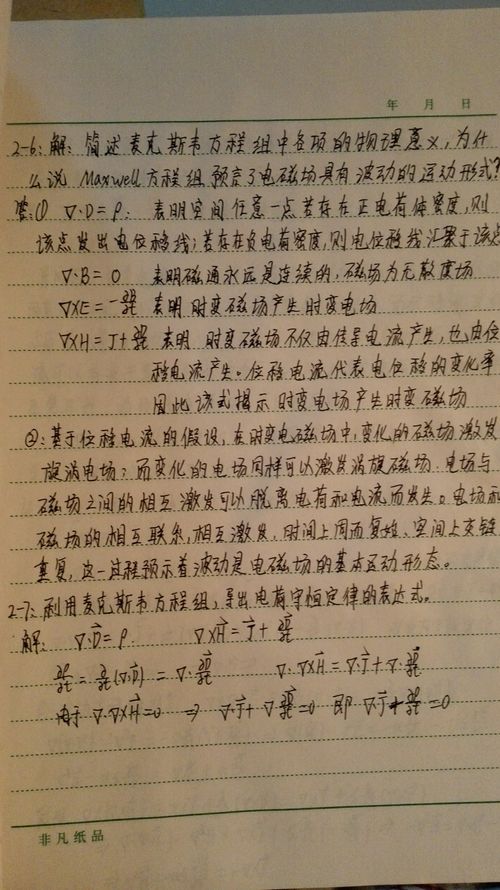 年 月 日
2-6: 解: 简述麦克斯韦方程组中各项的物理意义,为什
么说 Maxwell 方程组预言了电磁场具有波动的运动形式?
答:① ∇·D=ρ: 表明空间任意一点若存在正电荷体密度,则
该点发出电位移线;若存在负电荷密度,则电位移线汇聚于该点
∇·B=0 表明磁通永远是连续的,磁场为无散度场
∇×E=-∂B/∂t 表明 时变磁场产生时变电场
∇×H=J+∂D/∂t 表明 时变磁场不仅由传导电流产生,也由位
移电流产生。位移电流代表电位移的变化率
因此该式揭示 时变电场产生时变磁场
②:基于位移电流的假设,在时变电磁场中,变化的磁场激发
旋涡电场;而变化的电场同样可以激发涡旋磁场.电场与
磁场之间的相互激发可以脱离电荷和电流而发生。电场和
磁场的相互联系,相互激发,时间上周而复始、空间上交链
重复,这一过程预示着波动是电磁场的基本运动形态。
2-7: 利用麦克斯韦方程组,导出电荷守恒定律的表达式。
解: ∇·D⃗=ρ ∇×H⃗=J⃗+∂D⃗/∂t
∂ρ/∂t=∂/∂t(∇·D⃗)=∇·∂D⃗/∂t ∇·∇×H⃗=∇·J⃗+∇·∂D⃗/∂t
由于 ∇·∇×H⃗=0 ⇒ ∇·J⃗+∇·∂D⃗/∂t=0 即 ∇·J⃗+∂ρ/∂t=0
非凡纸品